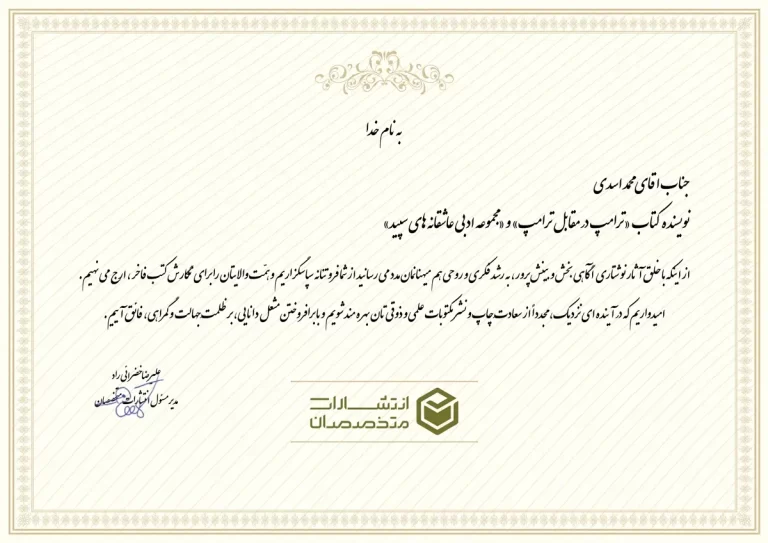 به نام خدا
جناب اقای محمد اسدی
نویسنده کتاب «ترامپ در مقابل ترامپ» و «مجموعه ادبی عاشقانه های سپید»
از اینکه با خلق آثار نوشتاری آگاهی بخش و بینش پرور، به رشد فکری و روحی هم میهنانمان مدد می رسانید از شما فروتنانه سپاسگزاریم و همّت والایتان را برای نگارش کتب فاخر، ارج می نهیم.
امیدواریم که در آینده ای نزدیک، مجدداً از سعادت چاپ و نشر مکتوبات علمی و ذوقی تان بهره مند شویم و با برافروختن مشعل دانایی، بر ظلمت جهالت و گمراهی، فائق آییم.
علیرضا خضرائی راد
مدیر مسئول انتشارات متخصصان
انتشارات
متخصصان